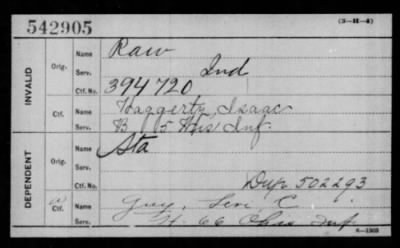 542905
(3—H—4)
INVALID
Orig.
Name Raw
Serv. Ind
Ctf. No. 394720
Ctf.
Name Haggerty, Isaac
Serv. B 5 Inf.
DEPENDENT
Orig.
Name Sta
Serv.
Ctf. No. Dup 502293
Ctf.
Name Guy, Levi C
Serv. H. 66 Ohio Inf